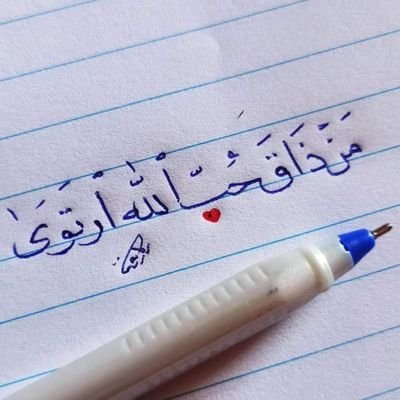 مَنْ ذَاقَ حُبَّ اللّٰهِ ارْتَوَىٰ